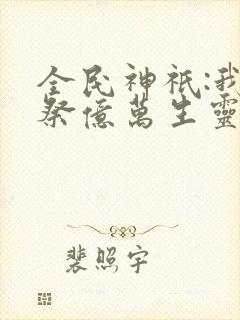 全民神祇:我
祭億萬生靈
裴照宇